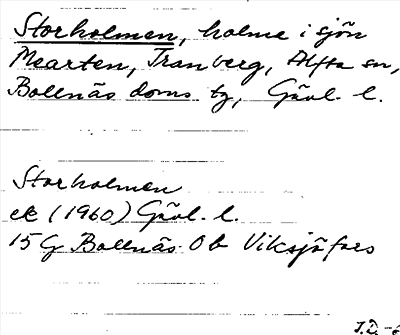 Storholmen, holme i sjön
Mearten, Tranberg, Alfta sn,
Bollnäs doms tg, Gävl. l.
Storholmen
ek (1960) Gävl. l.
15 G Bollnäs 0 b Viksjöfors